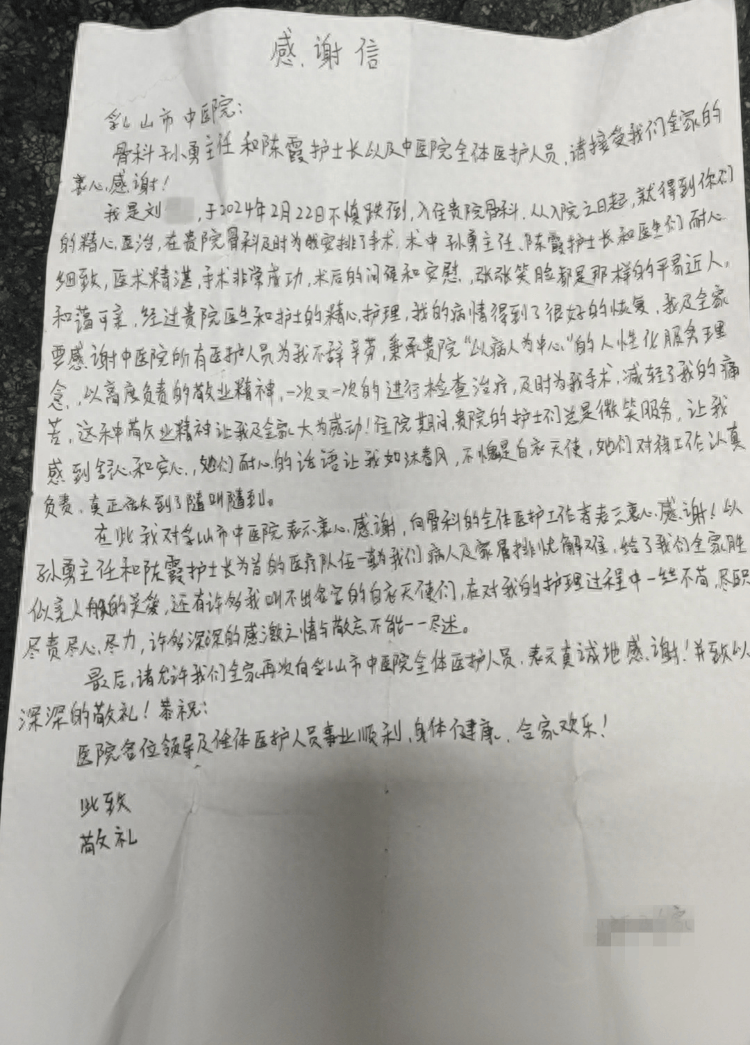 感谢信
乳山市中医院：
骨科孙勇主任和陈霞护士长以及中医院全体医护人员，请接受我们全家的
衷心感谢！
我是刘 ，于2024年2月22日不慎跌倒，入住贵院骨科，从入院之日起，就得到你们
的精心医治，在贵院骨科及时为我安排了手术．术中孙勇主任、陈霞护士长和医生们耐心
细致，医术精湛，手术非常成功，术后的问候和安慰，张张笑脸都是那样的平易近人，
和蔼可亲，经过贵院医生和护士的精心护理，我的病情得到了很好的恢复，我及全家
要感谢中医院所有医护人员为我不辞辛劳，秉承贵院“以病人为中心”的人性化服务理
念，以高度负责的敬业精神，一次又一次的进行检查治疗，及时为我手术，减轻了我的痛
苦，这种敬业精神让我及全家大为感动！住院期间，贵院的护士们总是微笑服务，让我
感到舒心和安心，她们耐心的话语让我如沐春风，不愧是白衣天使，她们对待工作认真
负责，真正做到了随叫随到。
在此我对乳山市中医院表示衷心感谢，向骨科的全体医护工作者表示衷心感谢！以
孙勇主任和陈霞护士长为首的医疗队伍一直为我们病人及家属排忧解难，给了我们全家胜
似亲人般的关爱，还有许多我叫不出名字的白衣天使们，在对我的护理过程中一丝不苟，尽职
尽责尽心尽力，许多深深的感激之情与敬意不能一一尽述。
最后，请允许我们全家再次向乳山市中医院全体医护人员，表示真诚地感谢！并致以
深深的敬礼！恭祝：
医院各位领导及全体医护人员事业顺利，身体健康，合家欢乐！
此致
敬礼